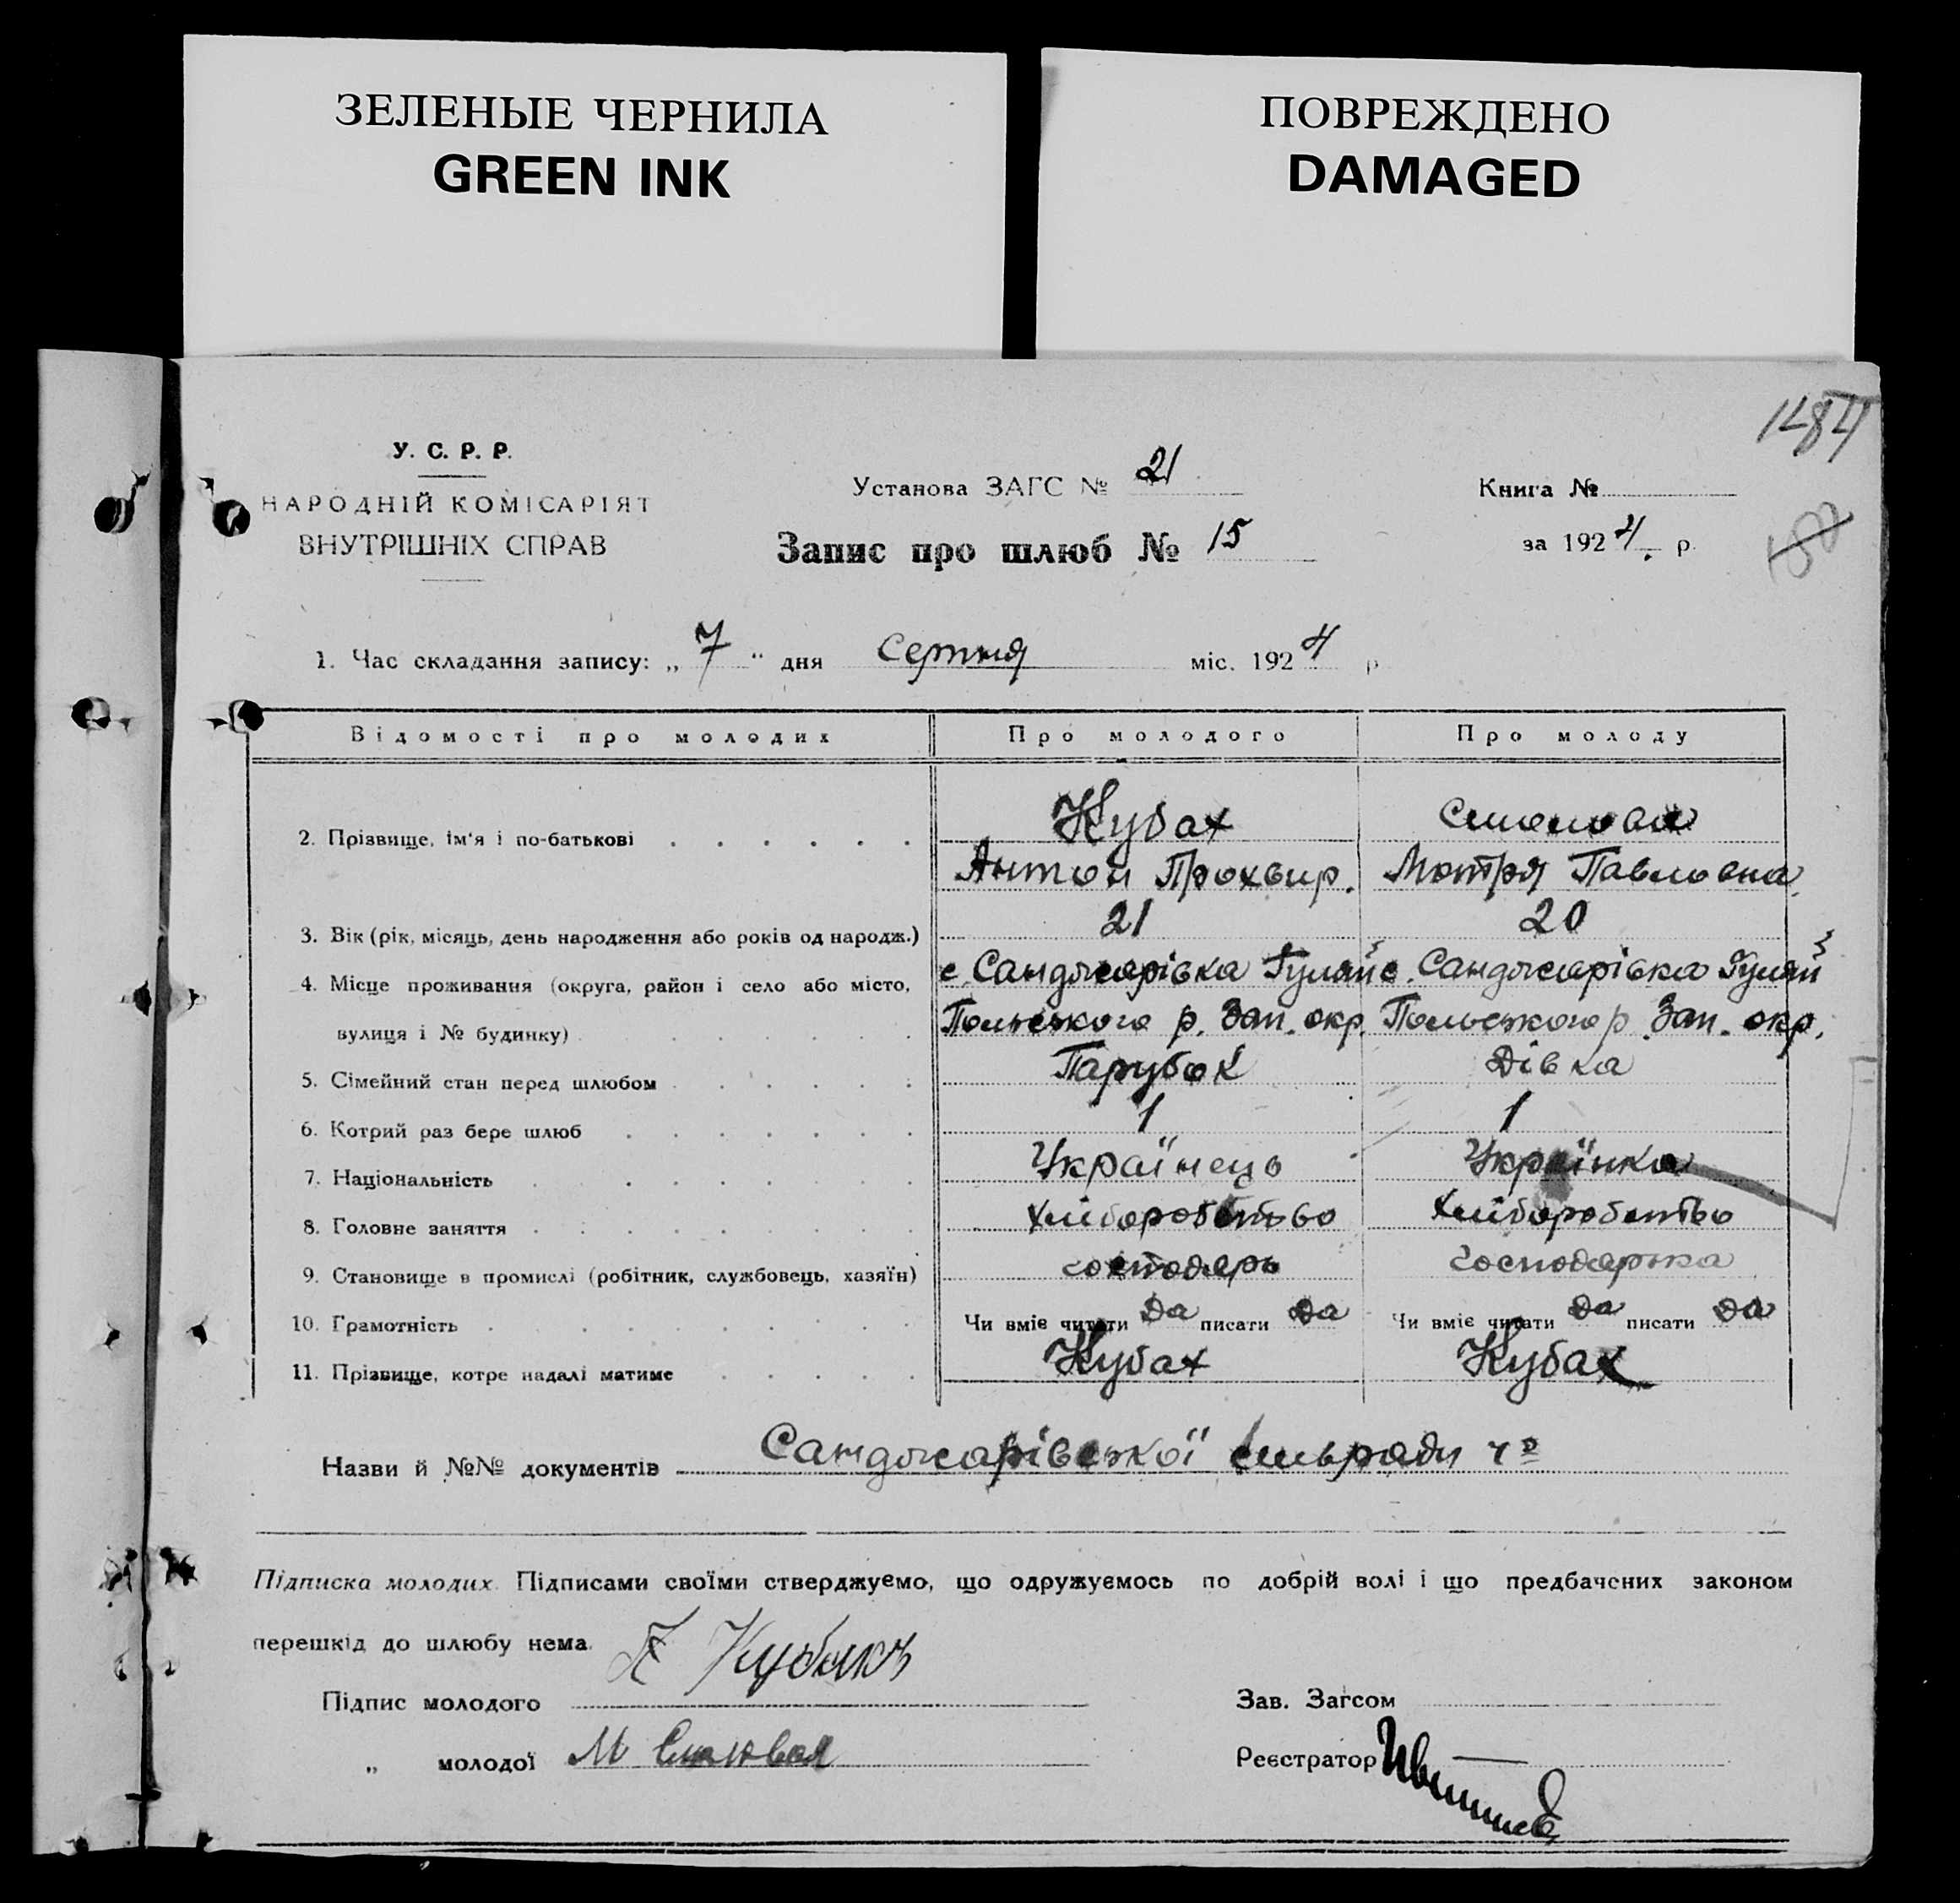 ЗЕЛЕНЫЕ ЧЕРНИЛА
GREEN INK
ПОВРЕЖДЕНО
DAMAGED
У. С. Р. Р.
НАРОДНІЙ КОМІСАРІЯТ
ВНУТРІШНІХ СПРАВ
Установа ЗАГС № 21
Запис про шлюб № 15
Книга №
за 1924. р.
1. Час складання запису: „ 7 “ дня Серпня міс. 1924 р
Відомості про молодих Про молодого Про молоду
2. Прізвище, ім'я і по-батькові Кубах
Антон Прохвир. Мотря Павловна
3. Вік (рік, місяць, день народження або років од народж.) 21 20
4. Місце проживання (округа, район і село або місто, с. Санджарівка Гуляй с. Санджарівка Гуляй
вулиця і № будинку) Польського р. Зап. окр. Польського р. Зап. окр.
5. Сімейний стан перед шлюбом Парубок Дівка
6. Котрий раз бере шлюб 1 1
7. Національність Українець Українка
8. Головне заняття Хліборобство Хліборобство
9. Становище в промислі (робітник, службовець, хазяїн) господарь господарка
10. Грамотність Чи вміє читати Да писати Да Чи вміє читати Да писати Да
11. Прізвище, котре надалі матиме Кубах Кубах
Назви й №№ документів Санджарівської сильради
Підписка молодих. Підписами своїми стверджуємо, що одружуємось по добрій волі і що предбачених законом
перешкід до шлюбу нема.
Підпис молодого
„ молодої М
Зав. Загсом
Реєстратор